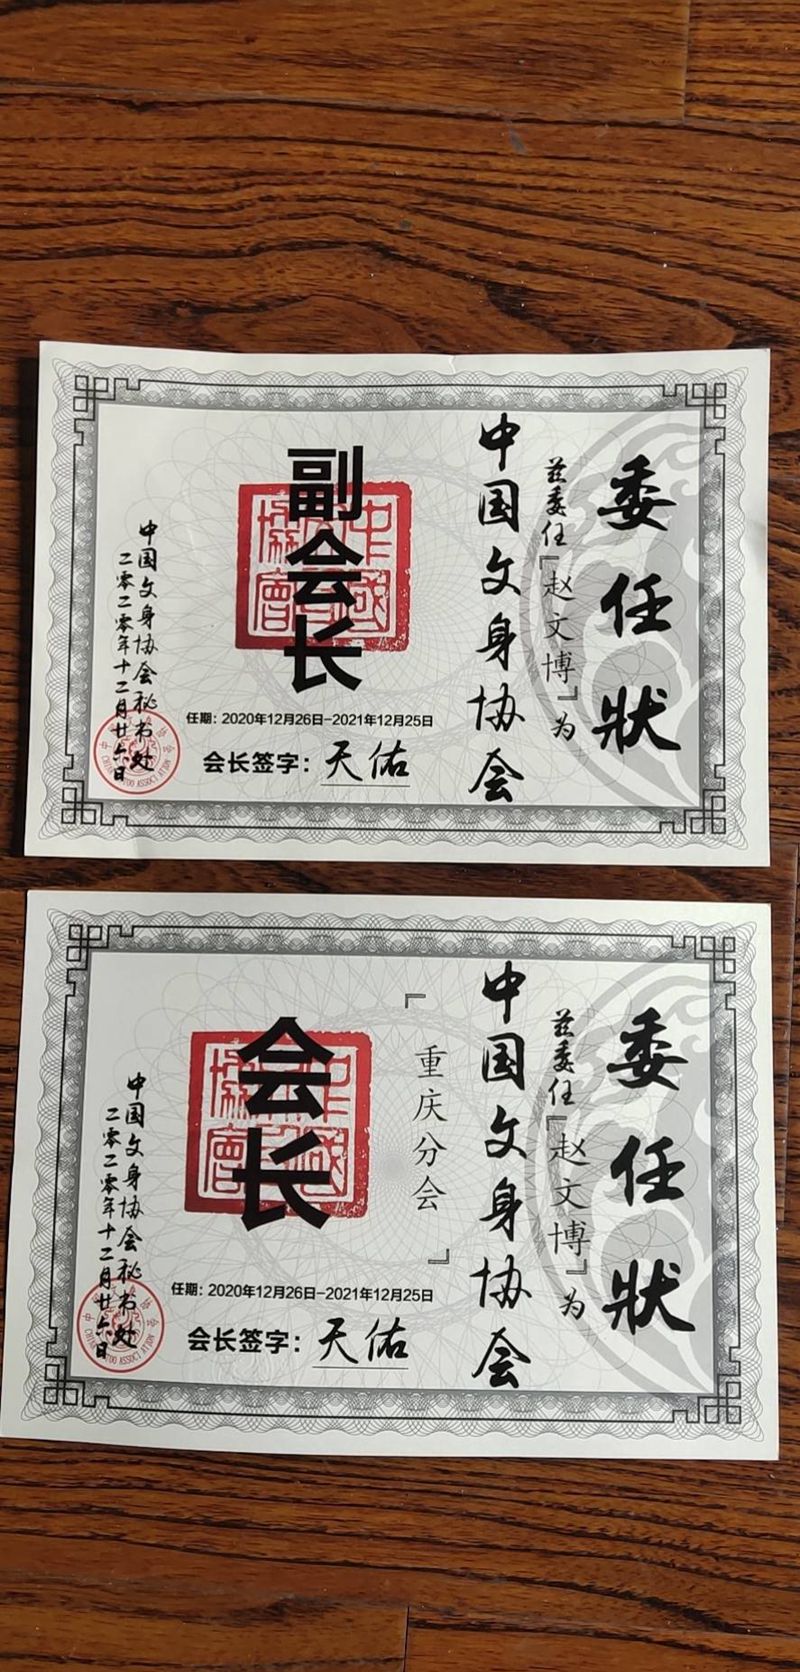 委任狀
兹委任『赵文博』为
中国文身协会
副会长
中國文身協會
任期：2020年12月26日-2021年12月25日
会长签字：天佑
中国文身协会秘书处
二零二零年十二月廿六日
委任狀
兹委任『赵文博』为
中国文身协会
『重庆分会』
会长
任期：2020年12月26日-2021年12月25日
会长签字：天佑
中国文身协会秘书处
二零二零年十二月廿六日